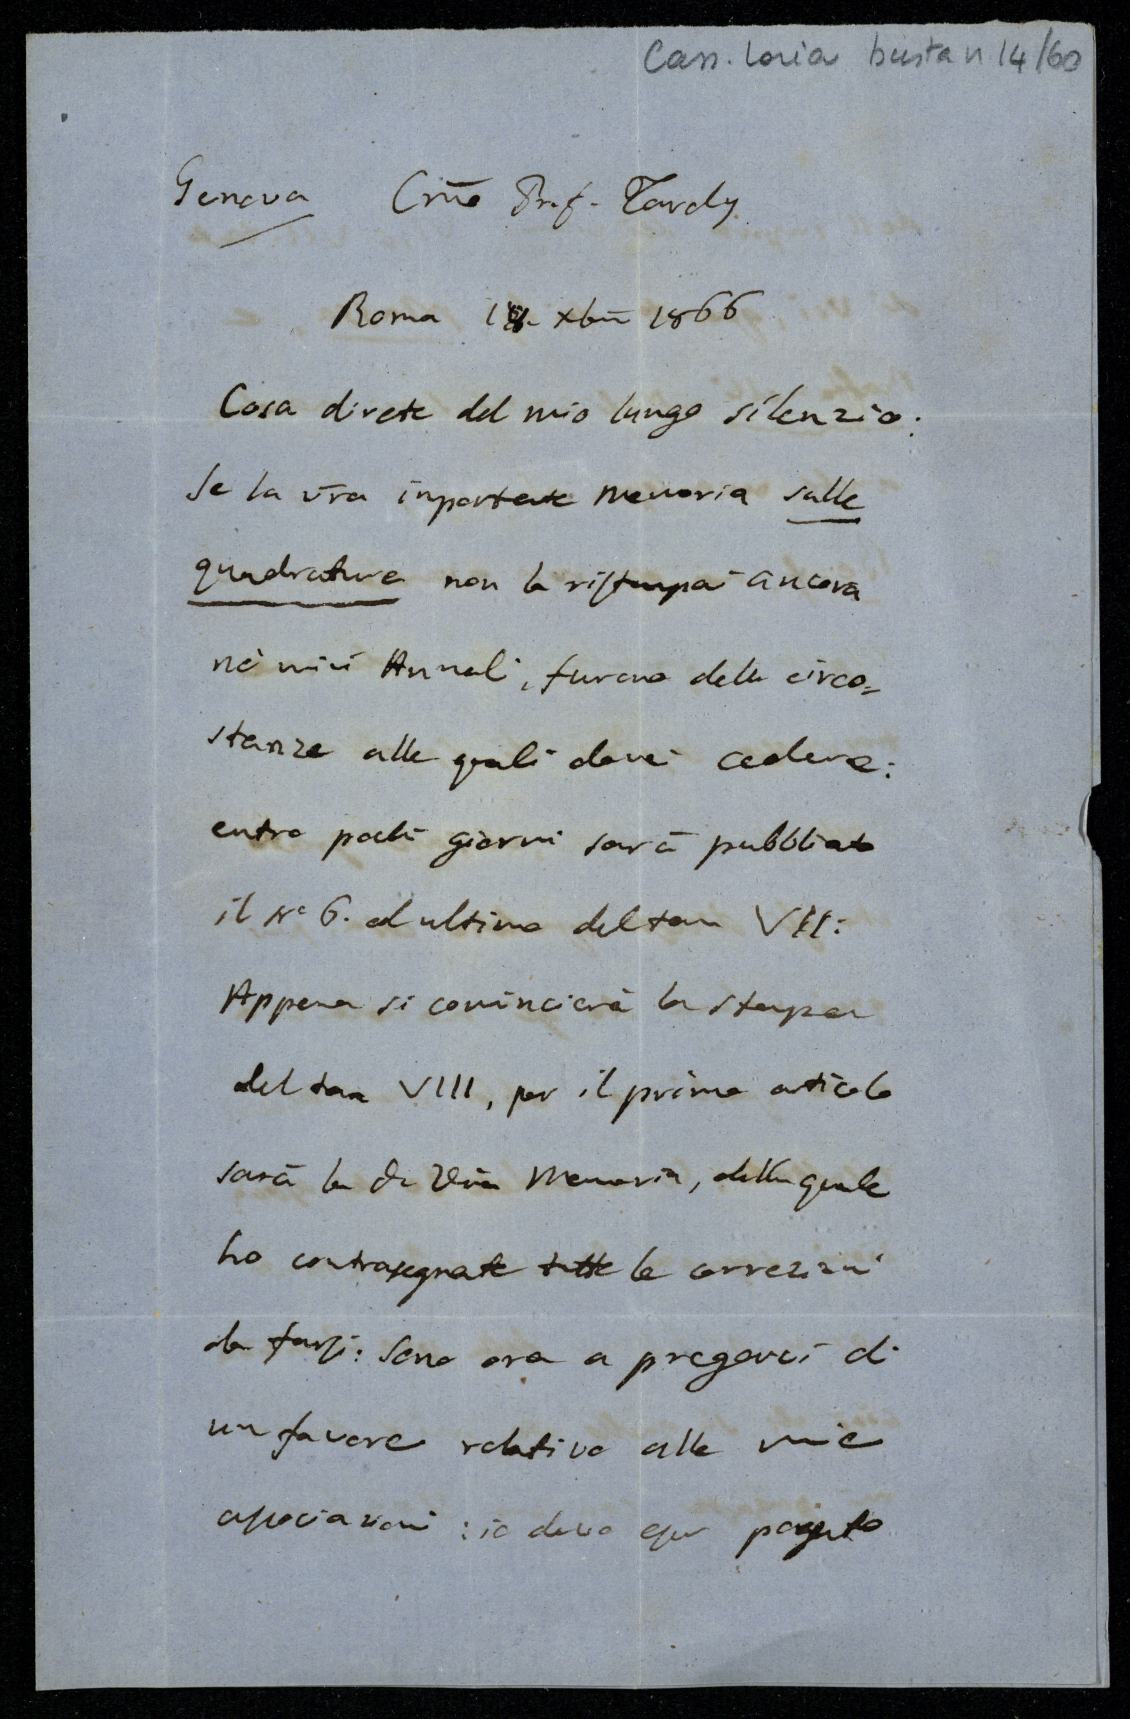 Cass. Loria busta n 14/60
Genova Cmo Prof. Tardy
Roma Xbre 1866
Cosa direte del mio lungo silenzio:
Se la vra importante memoria sulle
quadrature non la ristampai ancora
nei miei Annali, furono delle circo=
stanze alle quali dovei cedere:
entro pochi giorni sarà pubblicato
il No 6. ed ultimo del tom VII:
Appena si comincierà la stampa
del tom VIII, per il primo articolo
sarà la Vra Memoria, della quale
ho contrasegnate tutte le correzioni
da farsi: Sono ora a pregarvi di
un favore relativo alle mie
associazioni: io devo esser pagato